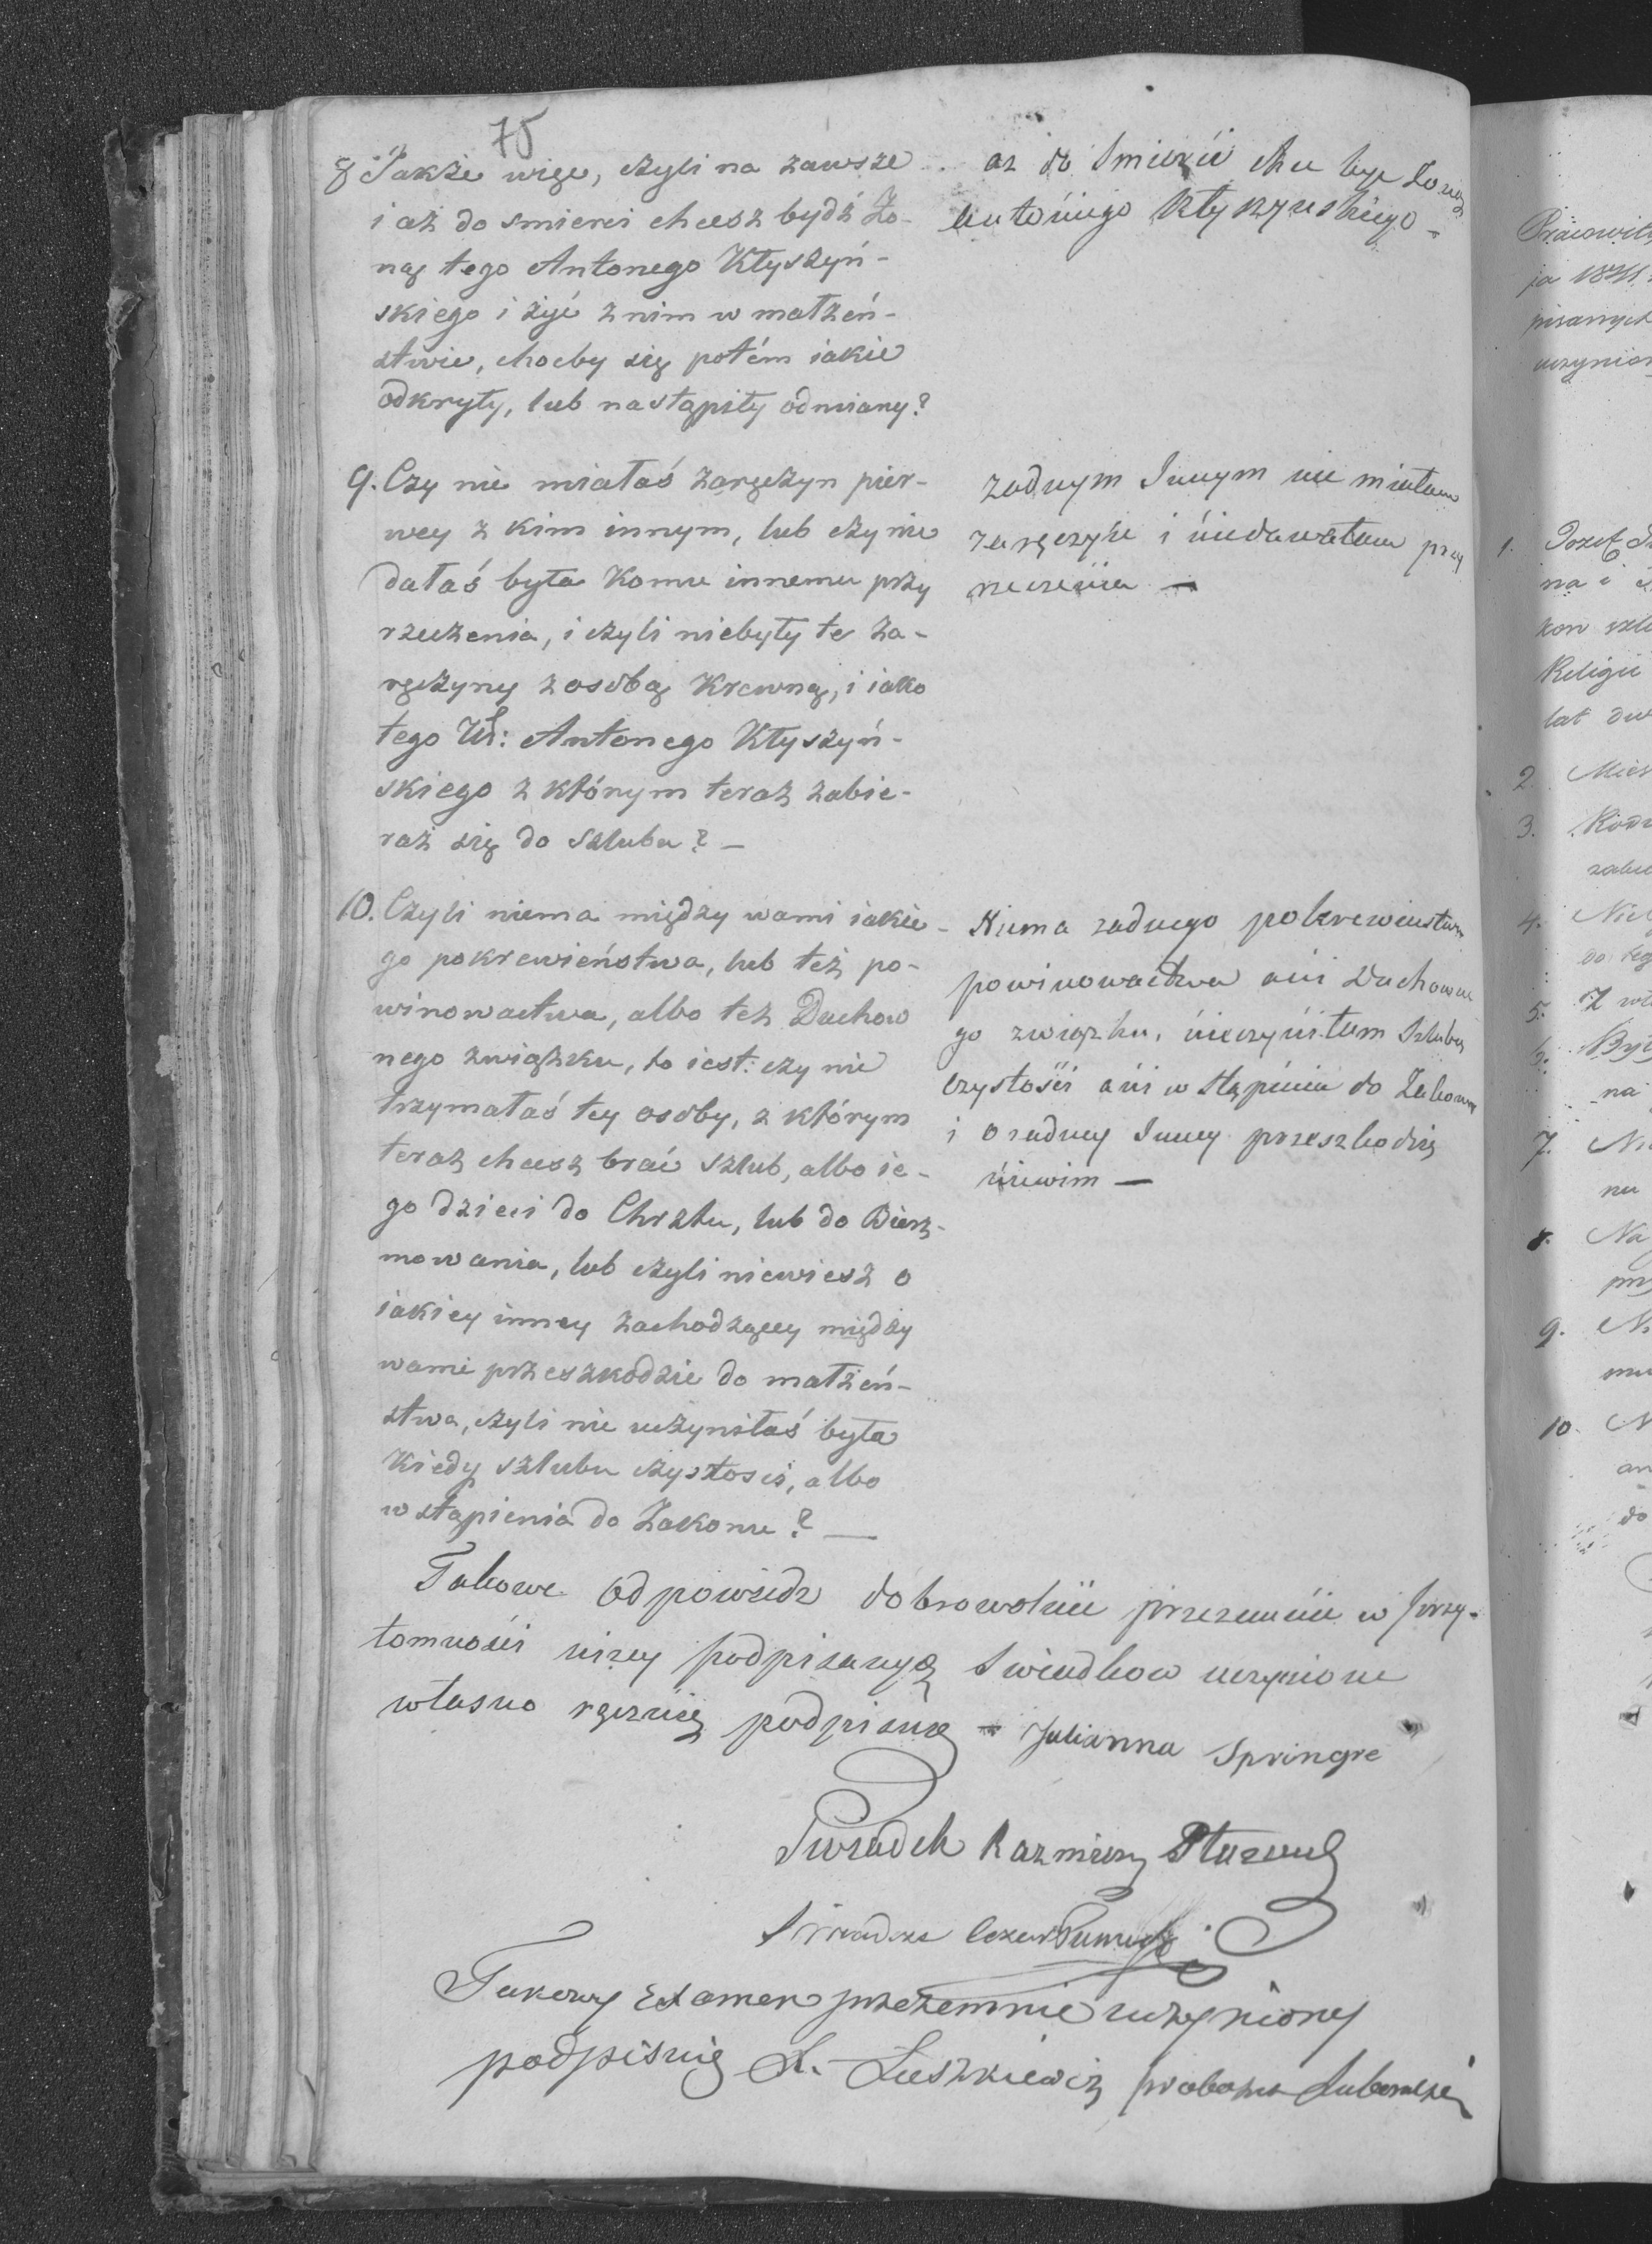 75
8 Jakże więc, czyli na zawsze
i aż do smierci chcesz bydź Żo-
ną tego Antonego Kłyszyń-
skiego i żyć z nim w małżeń-
stwie, choćby się potém iakie
odkryły, lub nastąpiły odmiany?
az do Smierci chce byc Zoną
Antoniego Kłyszynskiego -
9. Czy nie miałaś zaręczyn pier-
wey z kim innym, lub czy nie
dałaś była komu innemu przy
rzeczenia, i czyli niebyły te za-
ręczyny z osobą krewną, i iako
tego Ur: Antonego Kłyszyń-
skiego z którym teraz zabie-
raż się do szlubu? -
zadnym Innym nie miałam
zaręczyn i niedawałam przy
rzeczenia —
10. Czyli niema między wami iakie-
go pokrewieństwa, lub też po-
winowactwa, albo też Duchow
nego związku, to iest: czy nie
trzymałaś tey osoby, z którym
teraz chcesz brać szlub, albo ie-
go dzieci do Chrztu, lub do Bierz-
mowania, lub czyli niewiesz o
iakiey inney zachodzącey między
wami przeszkodzie do małżeń-
stwa, czyli nie uczyniłaś była
kiedy szlubu czystosci, albo
wstąpienia do Zakonu? —
Niema zadnego pokrewienstwa
powinowactwa ani Duchowne
go związku, nieczyniłam Szlubu
czystości ani wstąpienia do Zakonu
i o zadney Inney przeszkodzie
niewim —
Takowe Odpowiedz dobrowolnie przezemnie w przy-
tomności niżey podpisanych Swiadkow uczynione
własno ręcznię podpisuię - Julianna Springre
Swiadek Kazmierz
Swiadek Cezar
Takowy Examen przezemnie uczyniony
podpisuię X. Luszkiewicz proboszcz
Pracowit
ja 1841
pisanych
uczynion
1. Jozef
na i
kon szla
Religii
lat dw
2. Mies
3. Rodz
4. Nie
do teg
5. Z wł
6. Byc
na
7. Ni
nu
8. Na
prz
9. N
mu
10. N
an
do